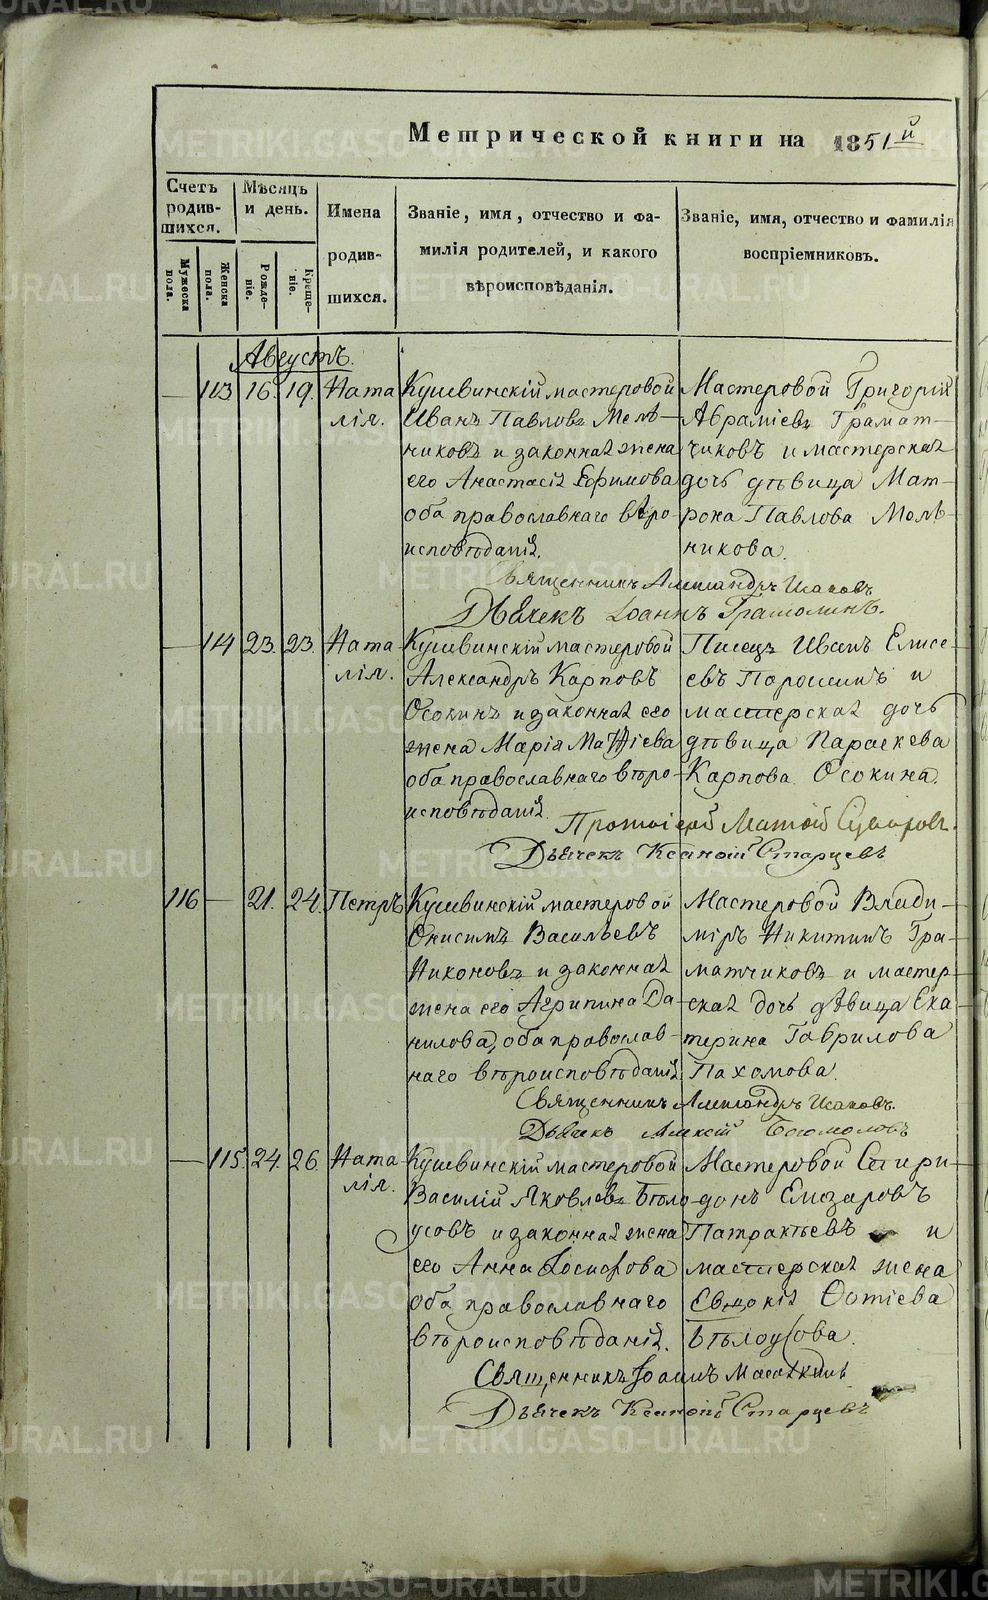 Метрической книги на 1851й
Счетъ родившихся.
Мужеска пола.
Женска пола.
Мѣсяцъ и день.
Рожденіе.
Крещеніе.
Имена родившихся.
Званіе, имя, отчество и фамилія родителей, и какого вѣроисповѣданія.
Званіе, имя, отчество и фамилія воспріемниковъ.
Августъ.
— 113 16. 19. Ната
лія.
Кушвинскій мастеровой
Иванъ Павловъ Мель-
никовъ и законная жена
его Анастасія Ефимова
оба православнаго вѣро
исповѣданія.
Мастеровой Григорій
Авраміевъ Грамат-
чиковъ и мастерская
дочь дѣвица Мат-
рона Павлова Мель-
никова.
Священникъ Александръ Исаковъ
Дьячекъ Іоаннъ Грамолинъ.
— 114 23. 23. Ната
лія.
Кушвинскій мастеровой
Александръ Карповъ
Осокинъ и законная его
жена Марія Матѳіева
оба православнаго вѣро-
исповѣданія.
Писецъ Иванъ Елисе-
евъ Порошинъ и
мастерская дочь
дѣвица Параскева
Карпова Осокина.
Протоіерей
Дьячекъ Старцевъ
116 — 21. 24. Петръ
Кушвинскій мастеровой
Онисимъ Васильевъ
Никоновъ и законная
жена его Агрипина Да-
нилова, оба православ-
наго вѣроисповѣданія.
Мастеровой Влади-
міръ Никитинъ Гра-
матчиковъ и мастер-
ская дочь дѣвица Ека
терина Гаврилова
Пахомова.
Священникъ Александръ Исаковъ.
Дьячекъ Алексій Богомоловъ
— 115. 24. 26. Ната
лія.
Кушвинскій мастеровой
Василій Яковлевъ Бѣло
усовъ и законная жена
его Анна Іосифова
оба православнаго
вѣроисповѣданія.
Мастеровой Спири-
донъ Елизаровъ
Патракѣевъ и
мастерская жена
Евдокія Фотіева
Бѣлоусова.
Священникъ Іоаннъ
Дьячекъ Старцевъ
METRIKI.GASO-URAL.RU